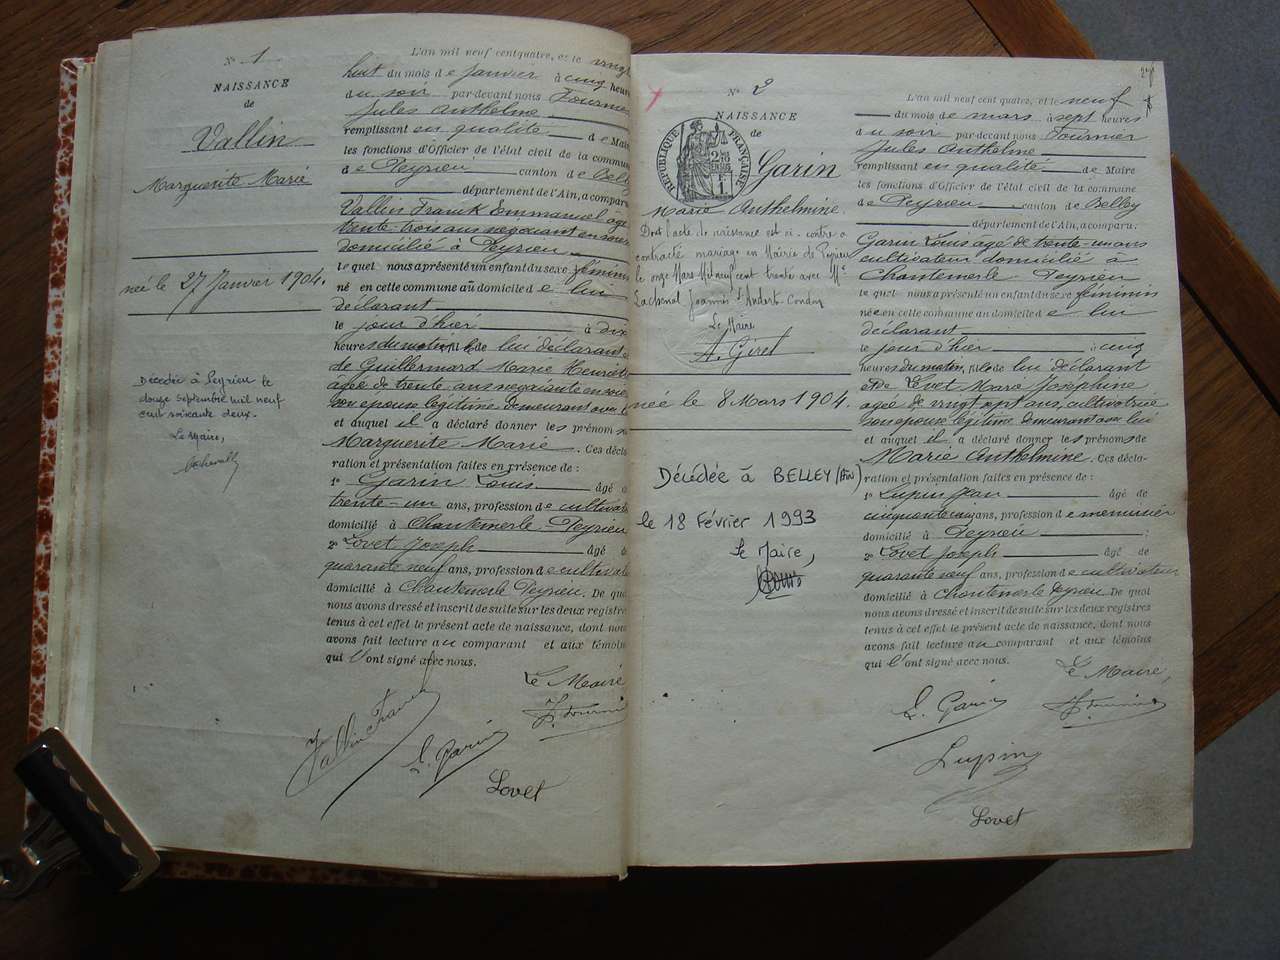 N° 1
NAISSANCE
de
Vallin
Marguerite Marie
née le 27 Janvier 1904.
Décédée à Peyrieu le
douze septembre mil neuf
cent soixante deux.
Le Maire,
L'an mil neuf cent quatre, et le vingt
huit du mois de Janvier à cinq heures
du soir par-devant nous Fournier
Jules Anthelme
remplissant en qualité de Maire
les fonctions d'Officier de l'état civil de la commune
de Peyrieu canton de Belley
département de l'Ain, a comparu
Vallin Franck Emmanuel âgé
trente-trois ans négociant en
domicilié à Peyrieu
lequel nous a présenté un enfant du sexe féminin
né en cette commune au domicile de lui
déclarant
le jour d'hier à dix
heures du matin, fils de lui déclarant et
de Guillermard Marie Henriette
âgée de trente ans négociante en
son épouse légitime demeurant avec lui
et auquel il a déclaré donner les prénoms
Marguerite Marie. Ces décla-
ration et présentation faites en présence de :
1° Garin Louis âgé de
trente-un ans, profession de cultivateur
domicilié à Chantemerle Peyrieu
2° Lovet Joseph âgé de
quarante neuf ans, profession de cultivateur
domicilié à Chantemerle Peyrieu. De quoi
nous avons dressé et inscrit de suite sur les deux registres
tenus à cet effet le présent acte de naissance, dont nous
avons fait lecture au comparant et aux témoins
qui l'ont signé avec nous.
Le Maire
J. Fournier
Vallin Franck
L. Garin
Lovet
27
N° 2
NAISSANCE
de
RÉPUBLIQUE FRANÇAISE
Garin
Marie Anthelmine.
Dont l'acte de naissance est ci-contre a
contracté mariage en Mairie de Peyrieu
le onze Mars Mil neuf cent trente avec Mr
Lachenal Joannès
Le Maire
A. Giret
née le 8 Mars 1904.
Décédée à BELLEY (Ain)
le 18 Février 1993
Le Maire,
L'an mil neuf cent quatre, et le neuf
du mois de mars à sept heures
du soir par-devant nous Fournier
Jules Anthelme
remplissant en qualité de Maire
les fonctions d'Officier de l'état civil de la commune
de Peyrieu canton de Belley
département de l'Ain, a comparu :
Garin Louis âgé de trente-un ans
cultivateur domicilié à
Chantemerle Peyrieu
lequel nous a présenté un enfant du sexe féminin
née en cette commune au domicile de lui
déclarant
le jour d'hier à cinq
heures du matin, fils de lui déclarant
et de Lovet Marie Joséphine
âgée de vingt sept ans, cultivatrice
son épouse légitime demeurant avec lui
et auquel il a déclaré donner les prénoms de
Marie Anthelmine. Ces décla-
ration et présentation faites en présence de :
1° Lupin Jean âgé de
cinquante cinq ans, profession de menuisier
domicilié à Peyrieu ;
2° Lovet Joseph âgé de
quarante neuf ans, profession de cultivateur
domicilié à Chantemerle Peyrieu. De quoi
nous avons dressé et inscrit de suite sur les deux registres
tenus à cet effet le présent acte de naissance, dont nous
avons fait lecture au comparant et aux témoins
qui l'ont signé avec nous.
Le Maire,
L. Garin
J. Fournier
Lupin
Lovet